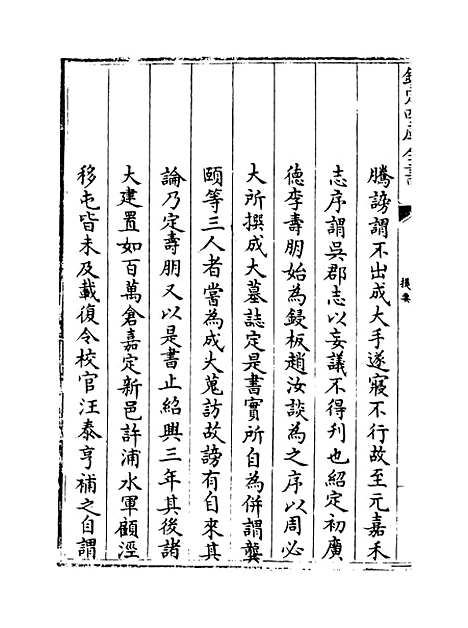 欽定四庫全書
提要
騰謗謂不出成大手遂寢不行故至元嘉禾
志序謂吳郡志以妄議不得刊也紹定初廣
德李壽朋始為鋟板趙汝談為之序以周必
大所撰成大墓誌定是書實所自為併謂龔
頤等三人者嘗為成大蒐訪故謗有自來其
論乃定壽朋又以是書止紹興三年其後諸
大建置如百萬倉嘉定新邑許浦水軍顧涇
移屯皆未及載復令校官汪泰亨補之自謂